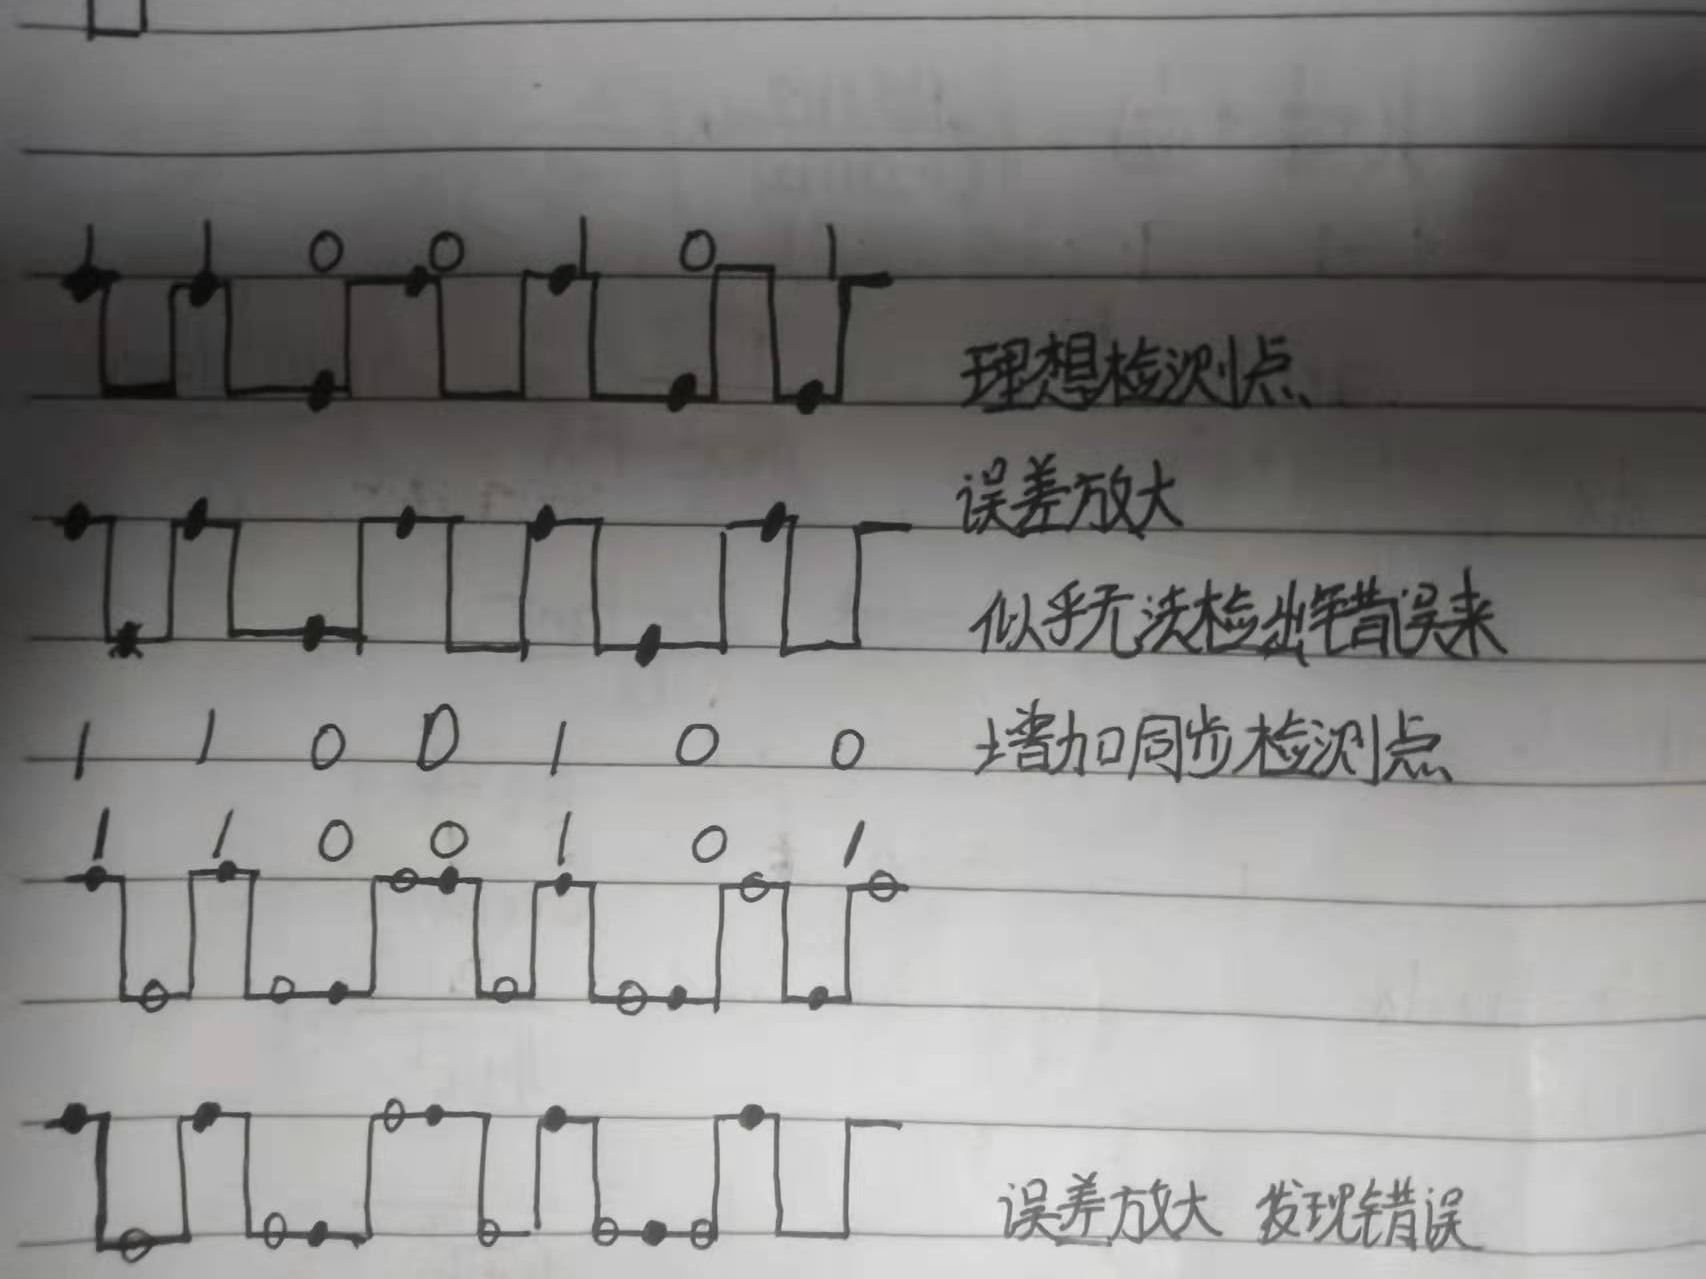 1 1 0 0 1 0 1
理想检测点
误差放大
似乎无法检出错误来
1 1 0 0 1 0 0 增加同步检测点
1 1 0 0 1 0 1
误差放大 发现错误